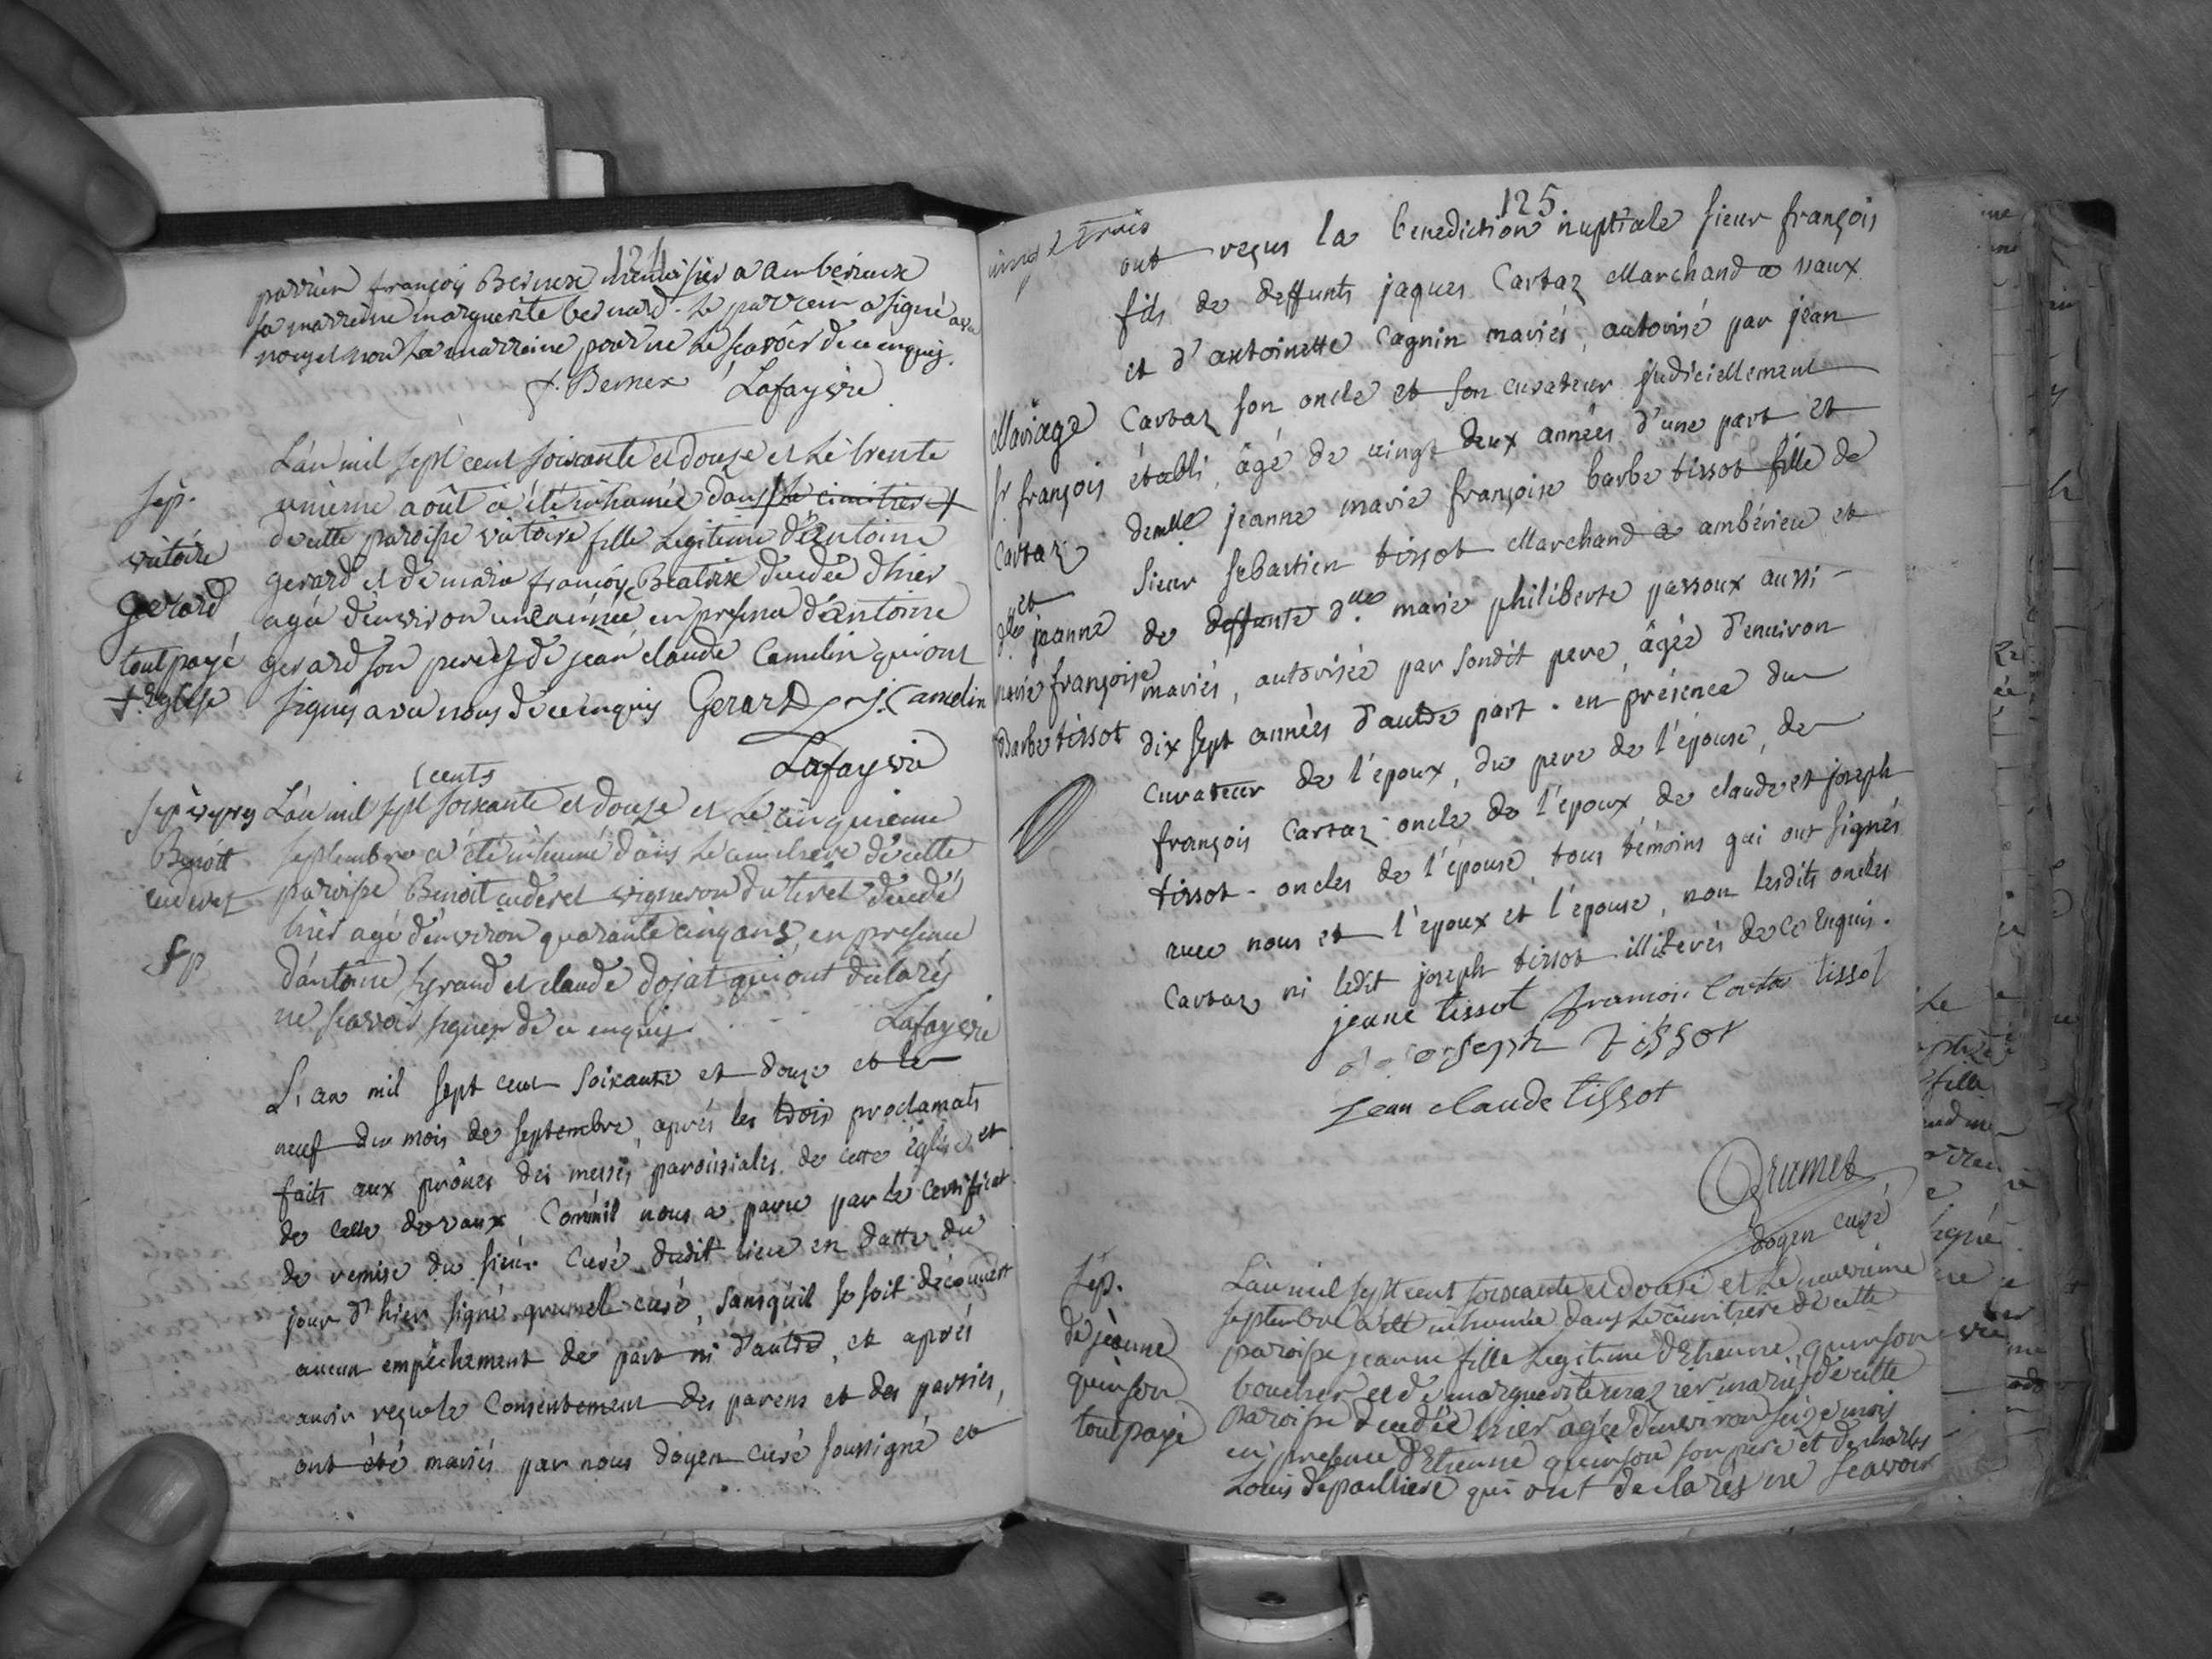 124
parrien françois Bernex menuisier a amberieux
sa marreine marguerite bernard. Le parrein a signé avec
nous et non la marreine pour ne le scavoir de ce enquis.
f. Bernex Lafayvre
Sep.
victoire
Gerard
tout payé
+ Eglise
L'an mil sept cent soixante et douze et le trente
unieme août a été inhumée dans le cimitiere +
de cette paroisse victoire fille Legitime d'antoine
gerard et de marie françoise Beatrix decedée d'hier
agée d'environ une année en presence d'antoine
gerard son pere et de jean claude Camelin qui ont
signés avec nous de ce enquis Gerard J. Camelin
Lafayvre
Benoit
cuderet
fp
cents
L'an mil sept soixante et douze et le cinquieme
septembre a été inhumé dans le cimetiere de cette
paroisse Benoit cuderet vigneron du tiret decedé
hier agé d'environ quarante cinq ans, en presence
d'antoine Lgrand et claude dojat qui ont declarés
ne scavoir signer de ce enquis Lafayvre
L'an mil sept cent soixante et douze et le
neuf du mois de septembre, aprés les trois proclamats
faits aux prônes des messes paroissiales de cette église et
de celle de vaux Comm'il nous a paru par le certificat
de remise du sieur Curé dudit lieu en datte du
jour d'hier signé grumet curé, sansqu'il se soit découvert
aucun empêchement de part ni d'autre, et aprés
avoir reçu le Consentement des parens et des parties,
ont été mariés par nous doyen curé soussigné et
125
vingt trois
ont reçus la benediction nuptiale sieur françois
fils de deffunts jaques Cartaz Marchand a vaux
et d'antoinette Cagnin mariés, autorisé par jean
Cartaz son oncle et son curateur judiciellement
établi, âgé de vingt deux années d'une part et
demelle jeanne marie françoise barbe tissot fille de
sieur sebastien tissot Marchand a ambérieu et
de deffunte d.lle marie philiberte passoux aussi
mariés, autorisée par sondit pere, âgée d'environ
dix sept années d'autre part. en présence du
curateur de l'epoux, du pere de l'épouse, de
françois Cartaz oncle de l'époux, de claude et joseph
tissot - oncles de l'épouse, tous témoins qui ont signés
avec nous et l'epoux et l'épouse, non lesdits oncles
Cartaz ni ledit joseph tissot illiterés de ce Enquis.
Mariage
sr. françois
Cartaz
et
d.lle jeanne
marie françoise
Barbe tissot
jeane tissot francois Cartaz tissot
joseph Tissot
Jean claude tissot
Grumet
doyen curé
Sep.
de jeanne
quinson
tout payé
L'an mil sept cent soixante et douse et le neuvieme
septembre a été inhumée dans le cimitiere de cette
paroisse jeanne fille Legitime d'Etienne quinson
boucher et de marguerite mariés de cette
paroisse decedée hier agée d'environ seize mois
en presence d'Etienne quinson son pere et de charles
Louis depailliere qui ont declarés ne scavoir